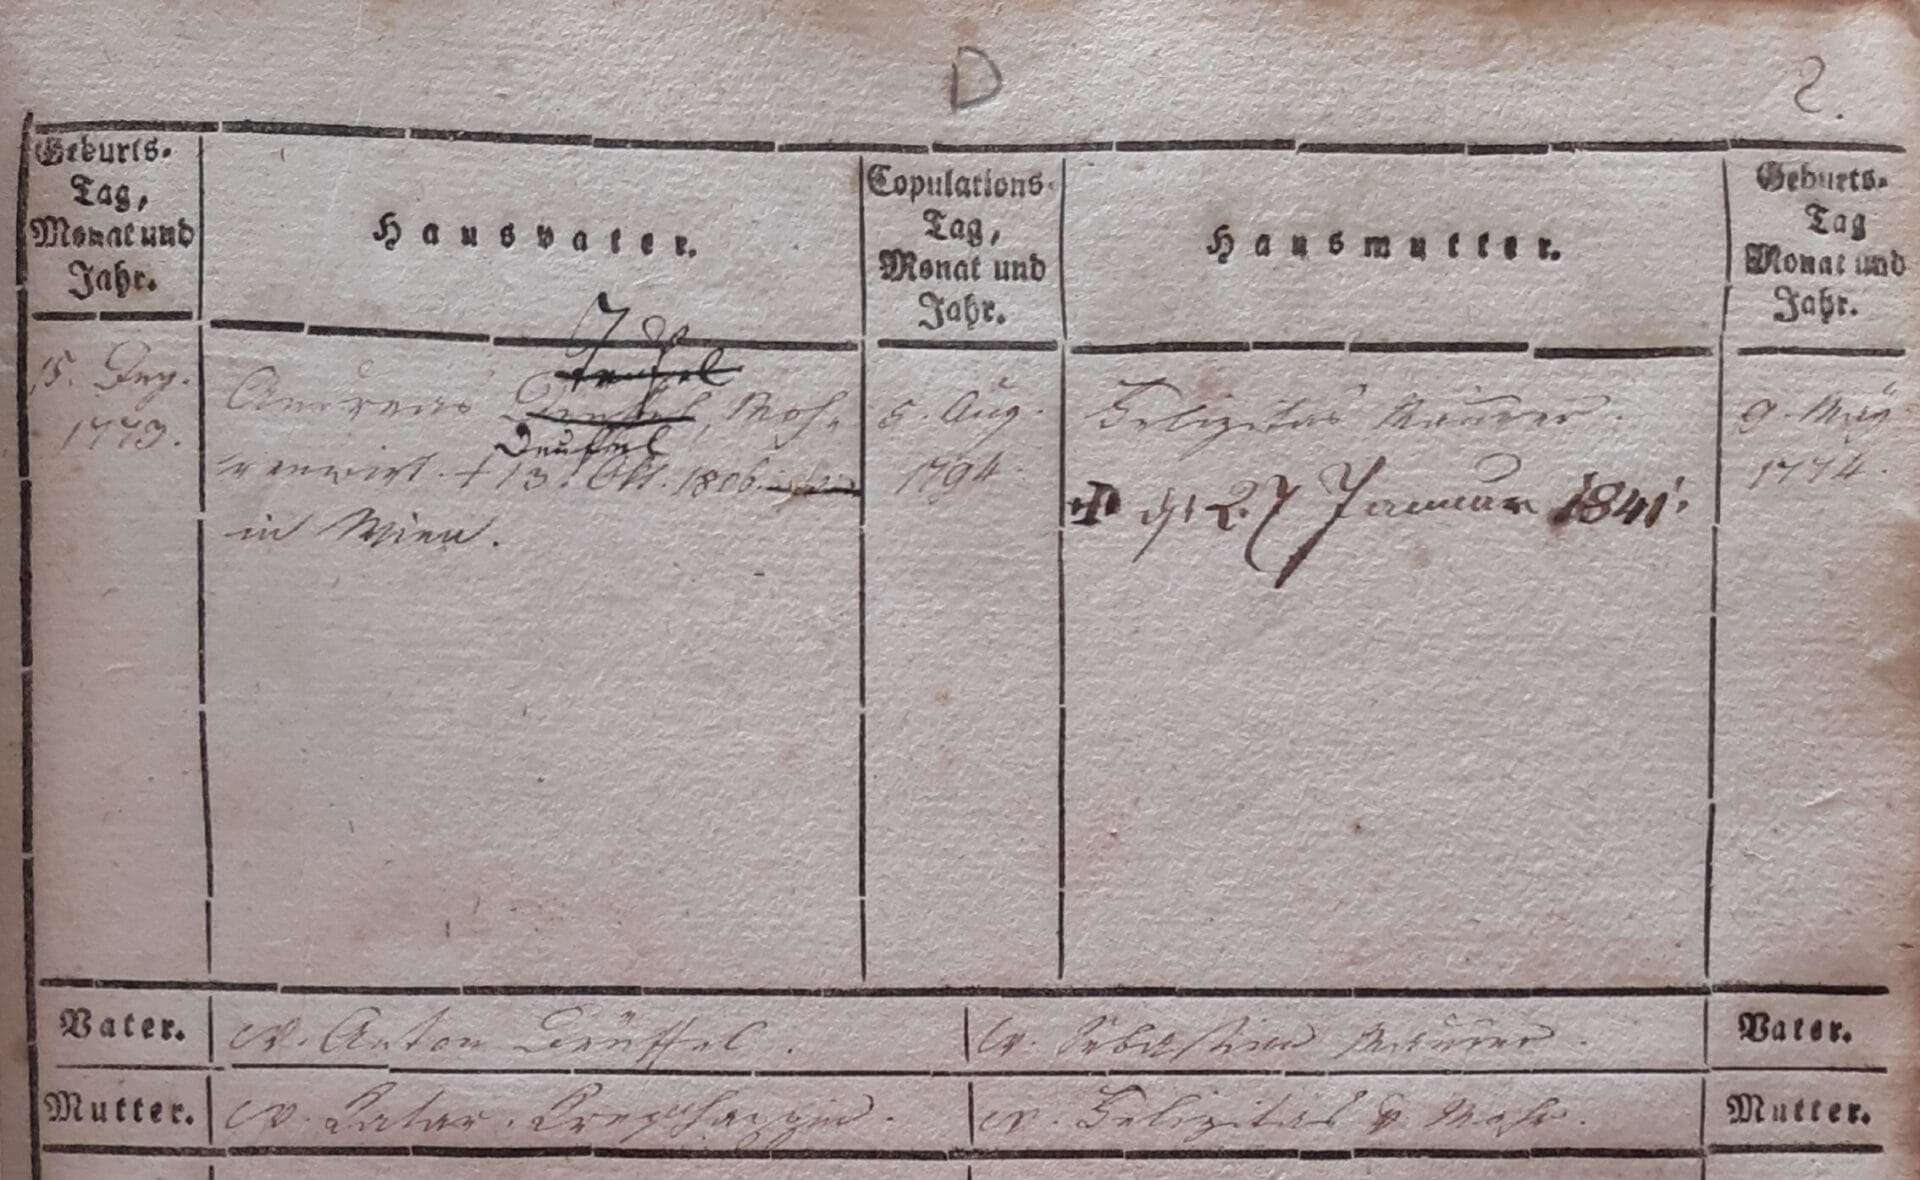 D
2.
Geburts-
Tag,
Monat und
Jahr.
Hausvater.
Copulations-
Tag,
Monat und
Jahr.
Hausmutter.
Geburts-
Tag
Monat und
Jahr.
15. Dez.
1773.
Teufel
Andreas Deufel, Moh-
Deuffel
renwirt. † 13. Okt. 1806
in Wien.
5. Aug.
1794.
Felizitas Maurer.
✠ d 27 Januar 1841.
9. May
1774.
Vater.
v. Anton Deuffel.
v. Sebastian Maurer.
Vater.
Mutter.
v. Katar.
v. Felizitas v. Mohr.
Mutter.